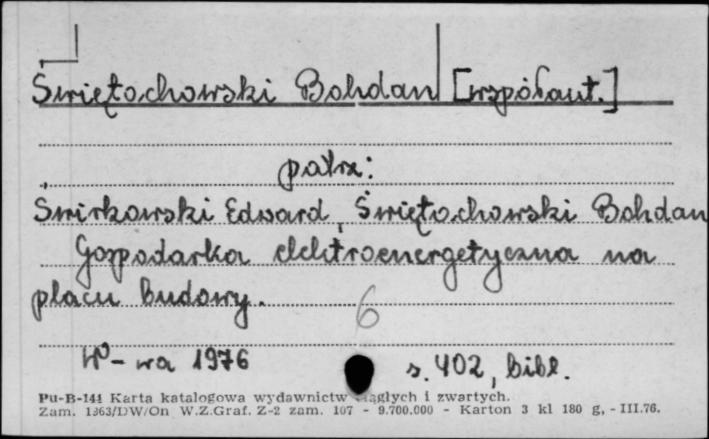 Świętochowski Bohdan [współaut.]
patrz:
Świrkowski Edward, Świętochowski Bohdan
Gospodarka elektroenergetyczna na
placu budowy.
6
W-wa 1976 s. 402, bibl.
Pu-B-141 Karta katalogowa wydawnictw ciągłych i zwartych.
Zam. 1363/DW/On W.Z.Graf. Z-2 zam. 107 - 9.700.000 - Karton 3 kl 180 g, - III.76.